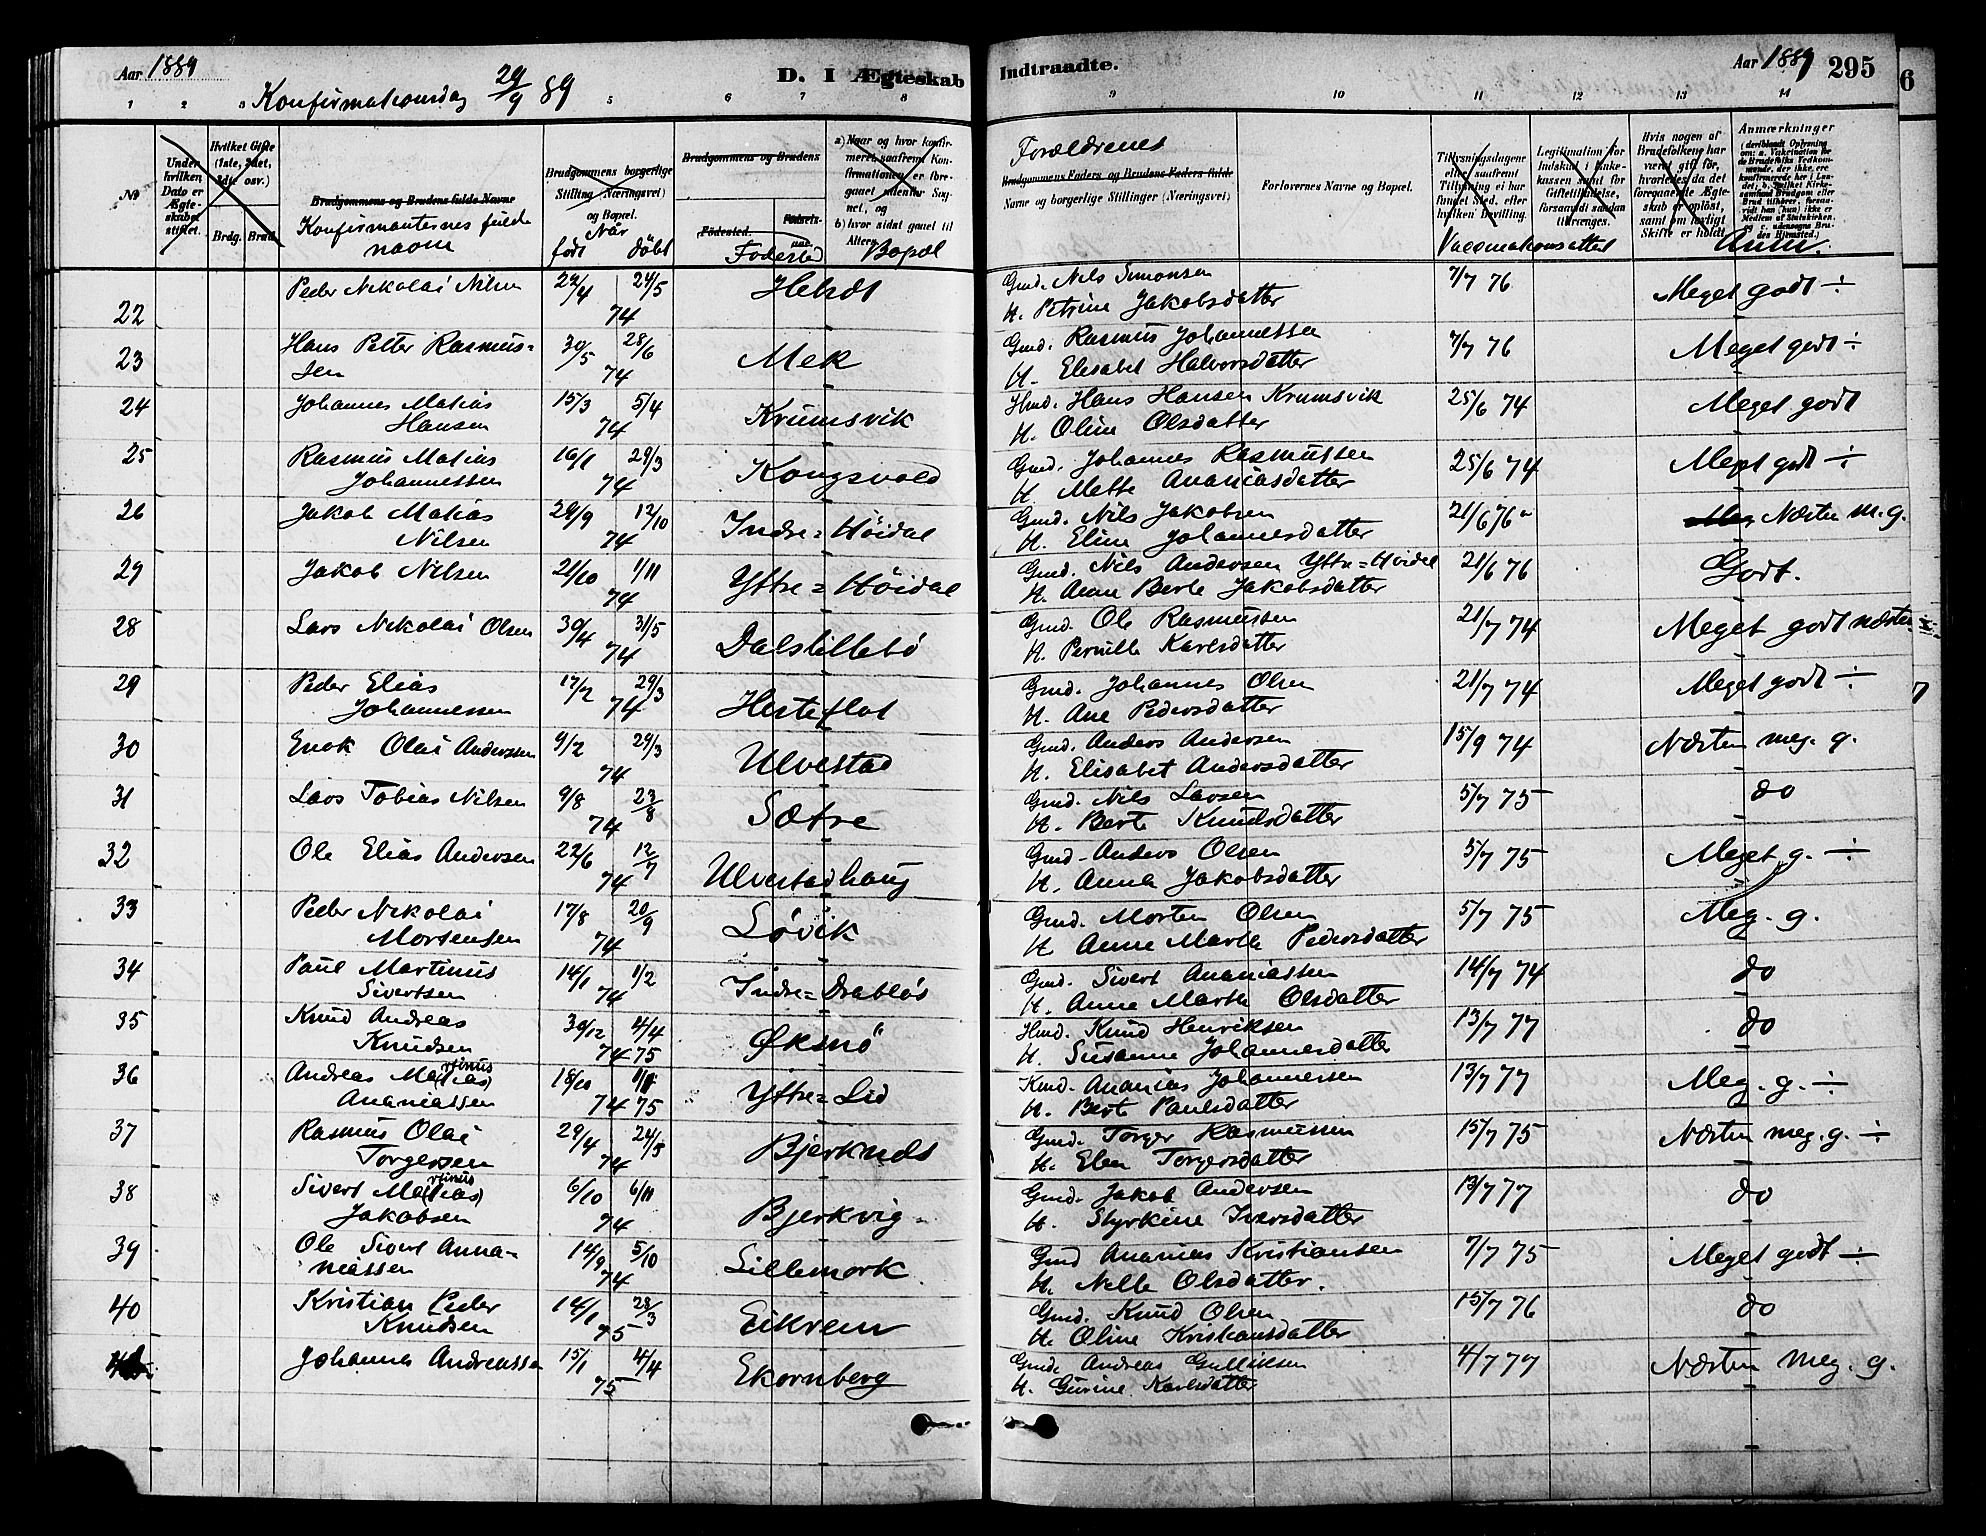 Aar 1889
Konfirmationsdag 29/9 89
D. I Ægteskab
Indtraadte.
Aar 1889
295
6
1 2 3 5 6 7 8 9 10 11 12 13 14
No
Under hvilken Dato er Ægteskabet stiftet.
Hvilket Gifte (1ste, 2det, 3die osv.)
Brdg. Brud.
Brudgommens og Brudens fulde Navne
Konfirmanternes fulde navn
Brudgommens borgerlige Stilling (Næringsvei) og Bopæl.
Når
født døbt
Brudgommens og Brudens
Födested. Födsels-
Fødested
a) Naar og hvor konfirmeret, saafremt Konfirmationen er foregaaet udenfor Sognet, og
b) hvor sidst gaaet til Alters.
Bopæl
Forældrenes
Brudgommens Faders og Brudens Faders fulde Navne og borgerlige Stillinger (Næringsvei)
Forlovernes Navne og Bopæl.
Tillysningsdagene eller saafremt Tillysning ei har fundet Sted, efter hvilken Bevilling.
Legitimation for Indskud i Enkekassen samt for Giftetilladelse, forsaavidt saadan tiltrænges.
Vaccinationsattest
Hvis nogen af Brudefolkene har været gift før, hvorledes da det foregaaende Ægteskab er opløst, samt om lovligt Skifte er holdt
Anmærkninger
Anm.
22 Peder Nikolai Nilsen 22/4 24/5 74 Helset Gmd. Nils Simonsen 7/7 76 Meget godt ÷
H. Petrine Jakobsdatter
23 Hans Petter Rasmus= 30/5 28/6 74 Mek Gmd. Rasmus Johannessen 7/7 76 Meget godt ÷
sen H. Elisabet Halvorsdatter
24 Johannes Matias 15/3 5/4 74 Krumsvik Hmd. Hans Hansen Krumsvik 25/6 74 Meget godt
Hansen H. Oline Olsdatter
25 Rasmus Matias 16/1 29/3 74 Kongsvold Gmd. Johannes Rasmussen 25/6 74 Meget godt ÷
Johannessen H. Mette Ananiasdatter
26 Jakob Matias 29/9 12/10 74 Indre=Höidal Gmd. Nils Jakobsen 21/6 76 Næsten m.g.
Nilsen H. Eline Johannesdatter
29 Jakob Nilsen 21/10 1/11 74 Yttre=Höidal Gmd. Nils Andersen Yttre=Höidal 21/6 76 Godt.
H. Anne Berte Jakobsdatter
28 Lars Nikolai Olsen 30/4 31/5 74 Dalslillebö Gmd. Ole Rasmussen 21/7 74 Meget godt næsten
H. Pernille Karlsdatter
29 Peder Elias 17/2 29/3 74 Hesteflot Gmd. Johannes Olsen 21/7 74 Meget godt ÷
Johannessen H. Ane Pedersdatter
30 Enok Olai Anderssen 9/2 29/3 74 Ulvestad Gmd. Anders Andersen 15/9 74 Næsten meg. g.
H. Elisabet Andersdatter
31 Lars Tobias Nilsen 9/8 23/8 74 Sætre Gmd. Nils Larsen 5/7 75 do
H. Berte Knudsdatter
32 Ole Elias Andersen 22/6 12/7 74 Ulvestadhaug Gmd. Anders Olsen 5/7 75 Meget g. ÷
H. Anna Jakobsdatter
33 Peder Nikolai 17/8 20/9 74 Lövik Gmd. Morten Olsen 5/7 75 Meg. g.
Mortensen H. Anne Marte Pedersdatter
34 Paul Martinus 14/1 1/2 74 Indre=Drabløs Gmd. Sivert Ananiassen 14/7 74 do
Sivertsen H. Anne Marte Olsdatter
35 Knud Andreas 30/12 4/4 74 75 Øksnö Hmd. Knud Henriksen 13/7 77 do
Knudsen H. Susanne Johannesdatter
36 Andreas Ma(tias)rtinus 18/10 74 75 Yttre=Lid Kmd. Ananias Johannessen 13/7 77 Meg. g. ÷
Ananiassen H. Berte Paulsdatter
37 Rasmus Olai 29/4 24/5 74 Bjerknæs Gmd. Torger Rasmussen 15/7 75 Næsten meg. g. ÷
Torgersen H. Elen Torgersdatter
38 Sivert Ma(tias)rtinus 6/10 6/11 74 Bjerkvig Gmd. Jakob Andersen 13/7 77 do
Jakobsen H. Styrkine Iversdatter
39 Ole Sivert Anna= 14/9 5/10 74 Lillemork Gmd Ananias Kristiansen 7/7 75 Meget godt ÷
niassen H. Nelle Olsdatter.
40 Kristian Peder 14/1 28/3 75 Eikrem Gmd. Knud Olsen 15/7 76 do
Knudsen H. Oline Kristiansdatter
Johannes Andreassen 15/1 4/4 75 Ekornberg Gmd. Andreas Gulliksen 4/7 77 Næsten meg. g.
H. Gurine Karlsdatter